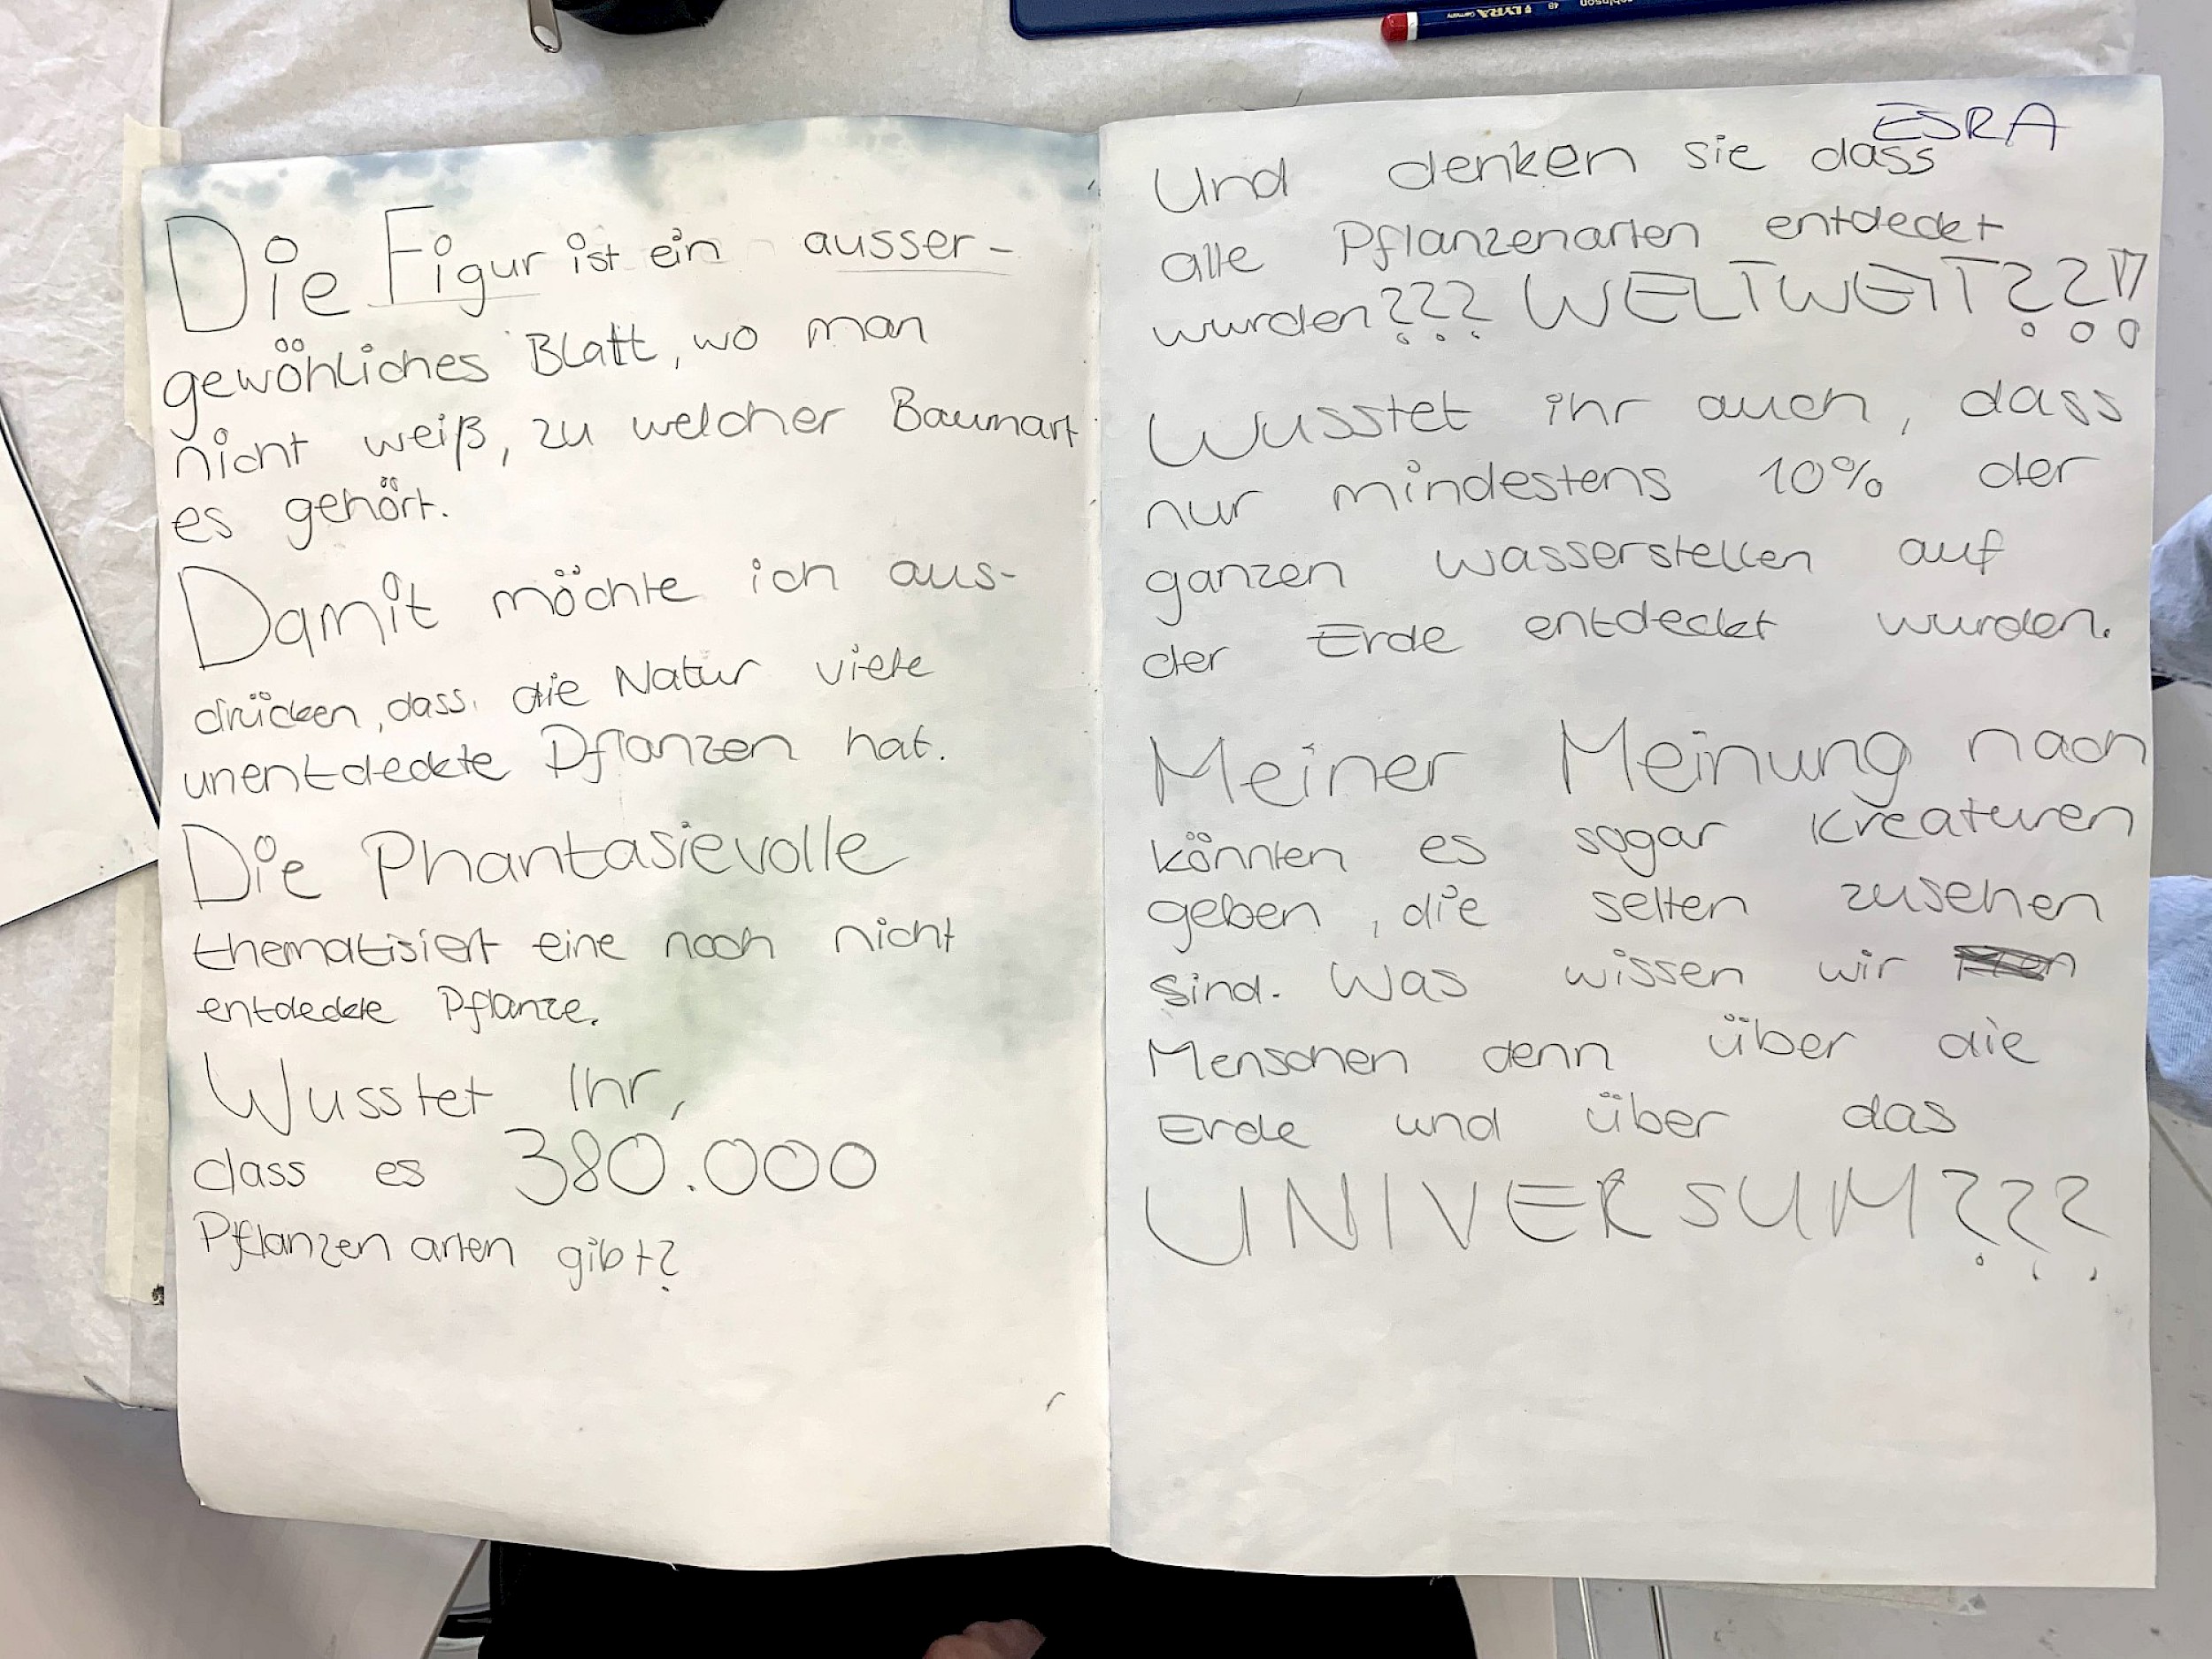 Die Figur ist ein ausser-
gewöhliches Blatt, wo man
nicht weiß, zu welcher Baumart
es gehört.
Damit möchte ich aus-
drücken, dass die Natur viele
unentdeckte Pflanzen hat.
Die Phantasievolle
thematisiert eine noch nicht
entdeckte Pflanze.
Wusstet Ihr,
dass es 380.000
Pflanzen arten gibt?
ESRA
Und denken sie dass
alle Pflanzenarten entdeckt
wurden??? WELTWEIT??!!
Wusstet ihr auch, dass
nur mindestens 10% der
ganzen wasserstellen auf
der Erde entdeckt wurden.
Meiner Meinung nach
könnten es sogar Kreaturen
geben, die selten zusehen
sind. Was wissen wir
Menschen denn über die
Erde und über das
UNIVERSUM???
LYRA Germany